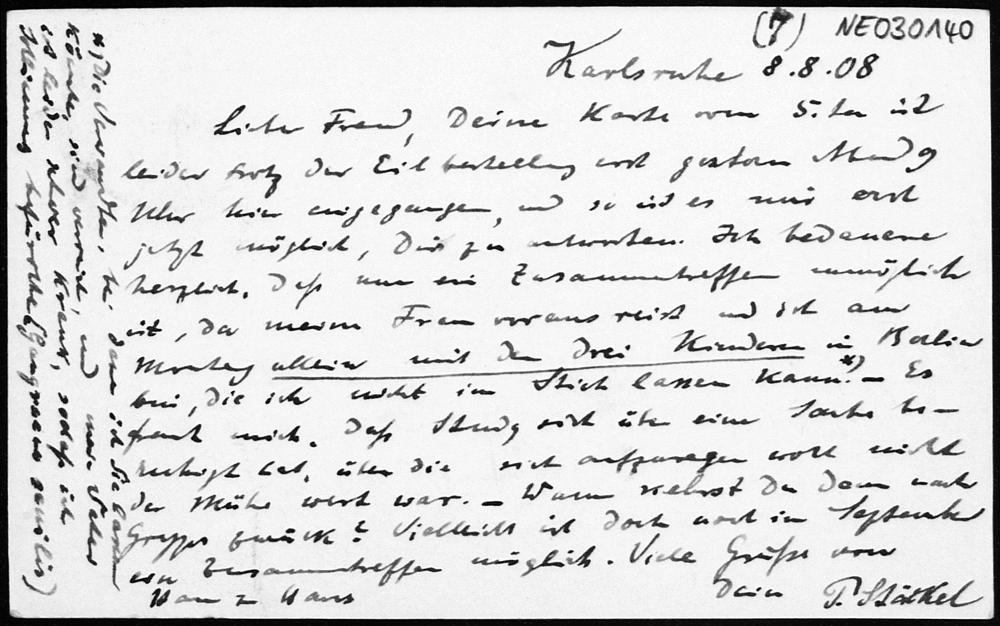 (7) NE030140
Karlsruhe 8.8.08
Lieber Freund, Deine Karte vom 5.ten ist
leider trotz der Eilbestellung erst gestern Abend 9
Uhr hier eingegangen, und so ist es mir erst
jetzt möglich, Dir zu antworten. Ich bedauere
herzlich, daß nun ein Zusammentreffen unmöglich
ist, da meine Frau vorausreist und ich am
Montag allein mit den drei Kindern in Berlin
bin, die ich nicht im Stich lassen kann.*) – Es
freut mich, daß Study sich über eine Sache be-
ruhigt hat, über die sich aufzuregen wohl nicht
der Mühe wert war. – Wann kehrst Du denn nach
zurück? Vielleicht ist doch noch im September
ein Zusammentreffen möglich. Viele Grüße von
Haus zu Haus Dein P. Stäckel
*) Die Verwandten, bei denen ich sie lassen
könnte, sind verreist, und mein
ist leider schwer krank, sodaß ich
Schlimmes befürchte (Gangraena senilis)